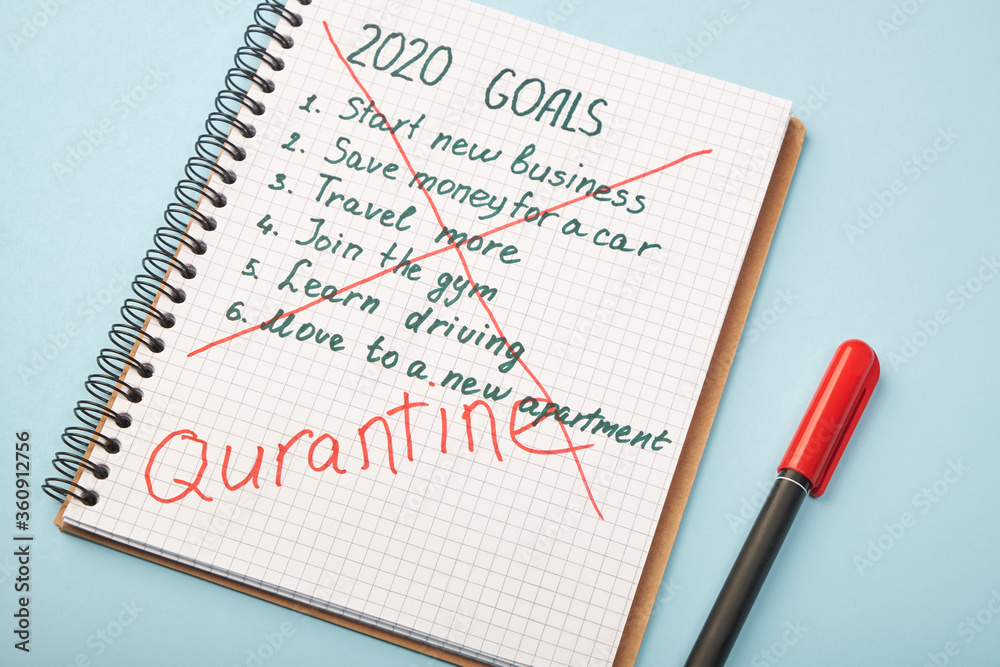 2020 GOALS
1. Start new business
2. Save money for a car
3. Travel more
4. Join the gym
5. Learn driving
6. Move to a new apartment
Qurantine
Adobe Stock | #360912756